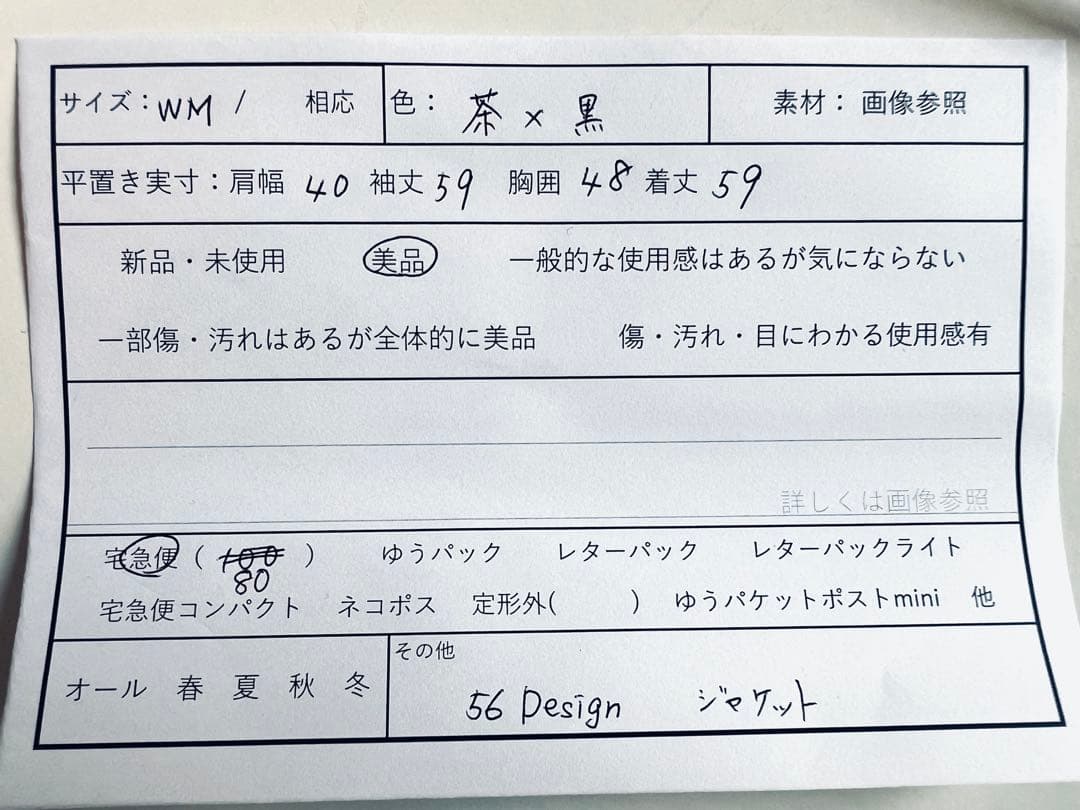 サイズ：WM / 相応 色： 茶 × 黒 素材： 画像参照
平置き実寸：肩幅 40 袖丈 59 胸囲 48 着丈 59
新品・未使用 美品 一般的な使用感はあるが気にならない
一部傷・汚れはあるが全体的に美品 傷・汚れ・目にわかる使用感有
詳しくは画像参照
宅急便（ 100 ） ゆうパック レターパック レターパックライト
80
宅急便コンパクト ネコポス 定形外( ) ゆうパケットポストmini 他
オール 春 夏 秋 冬
その他
56 Design ジャケット